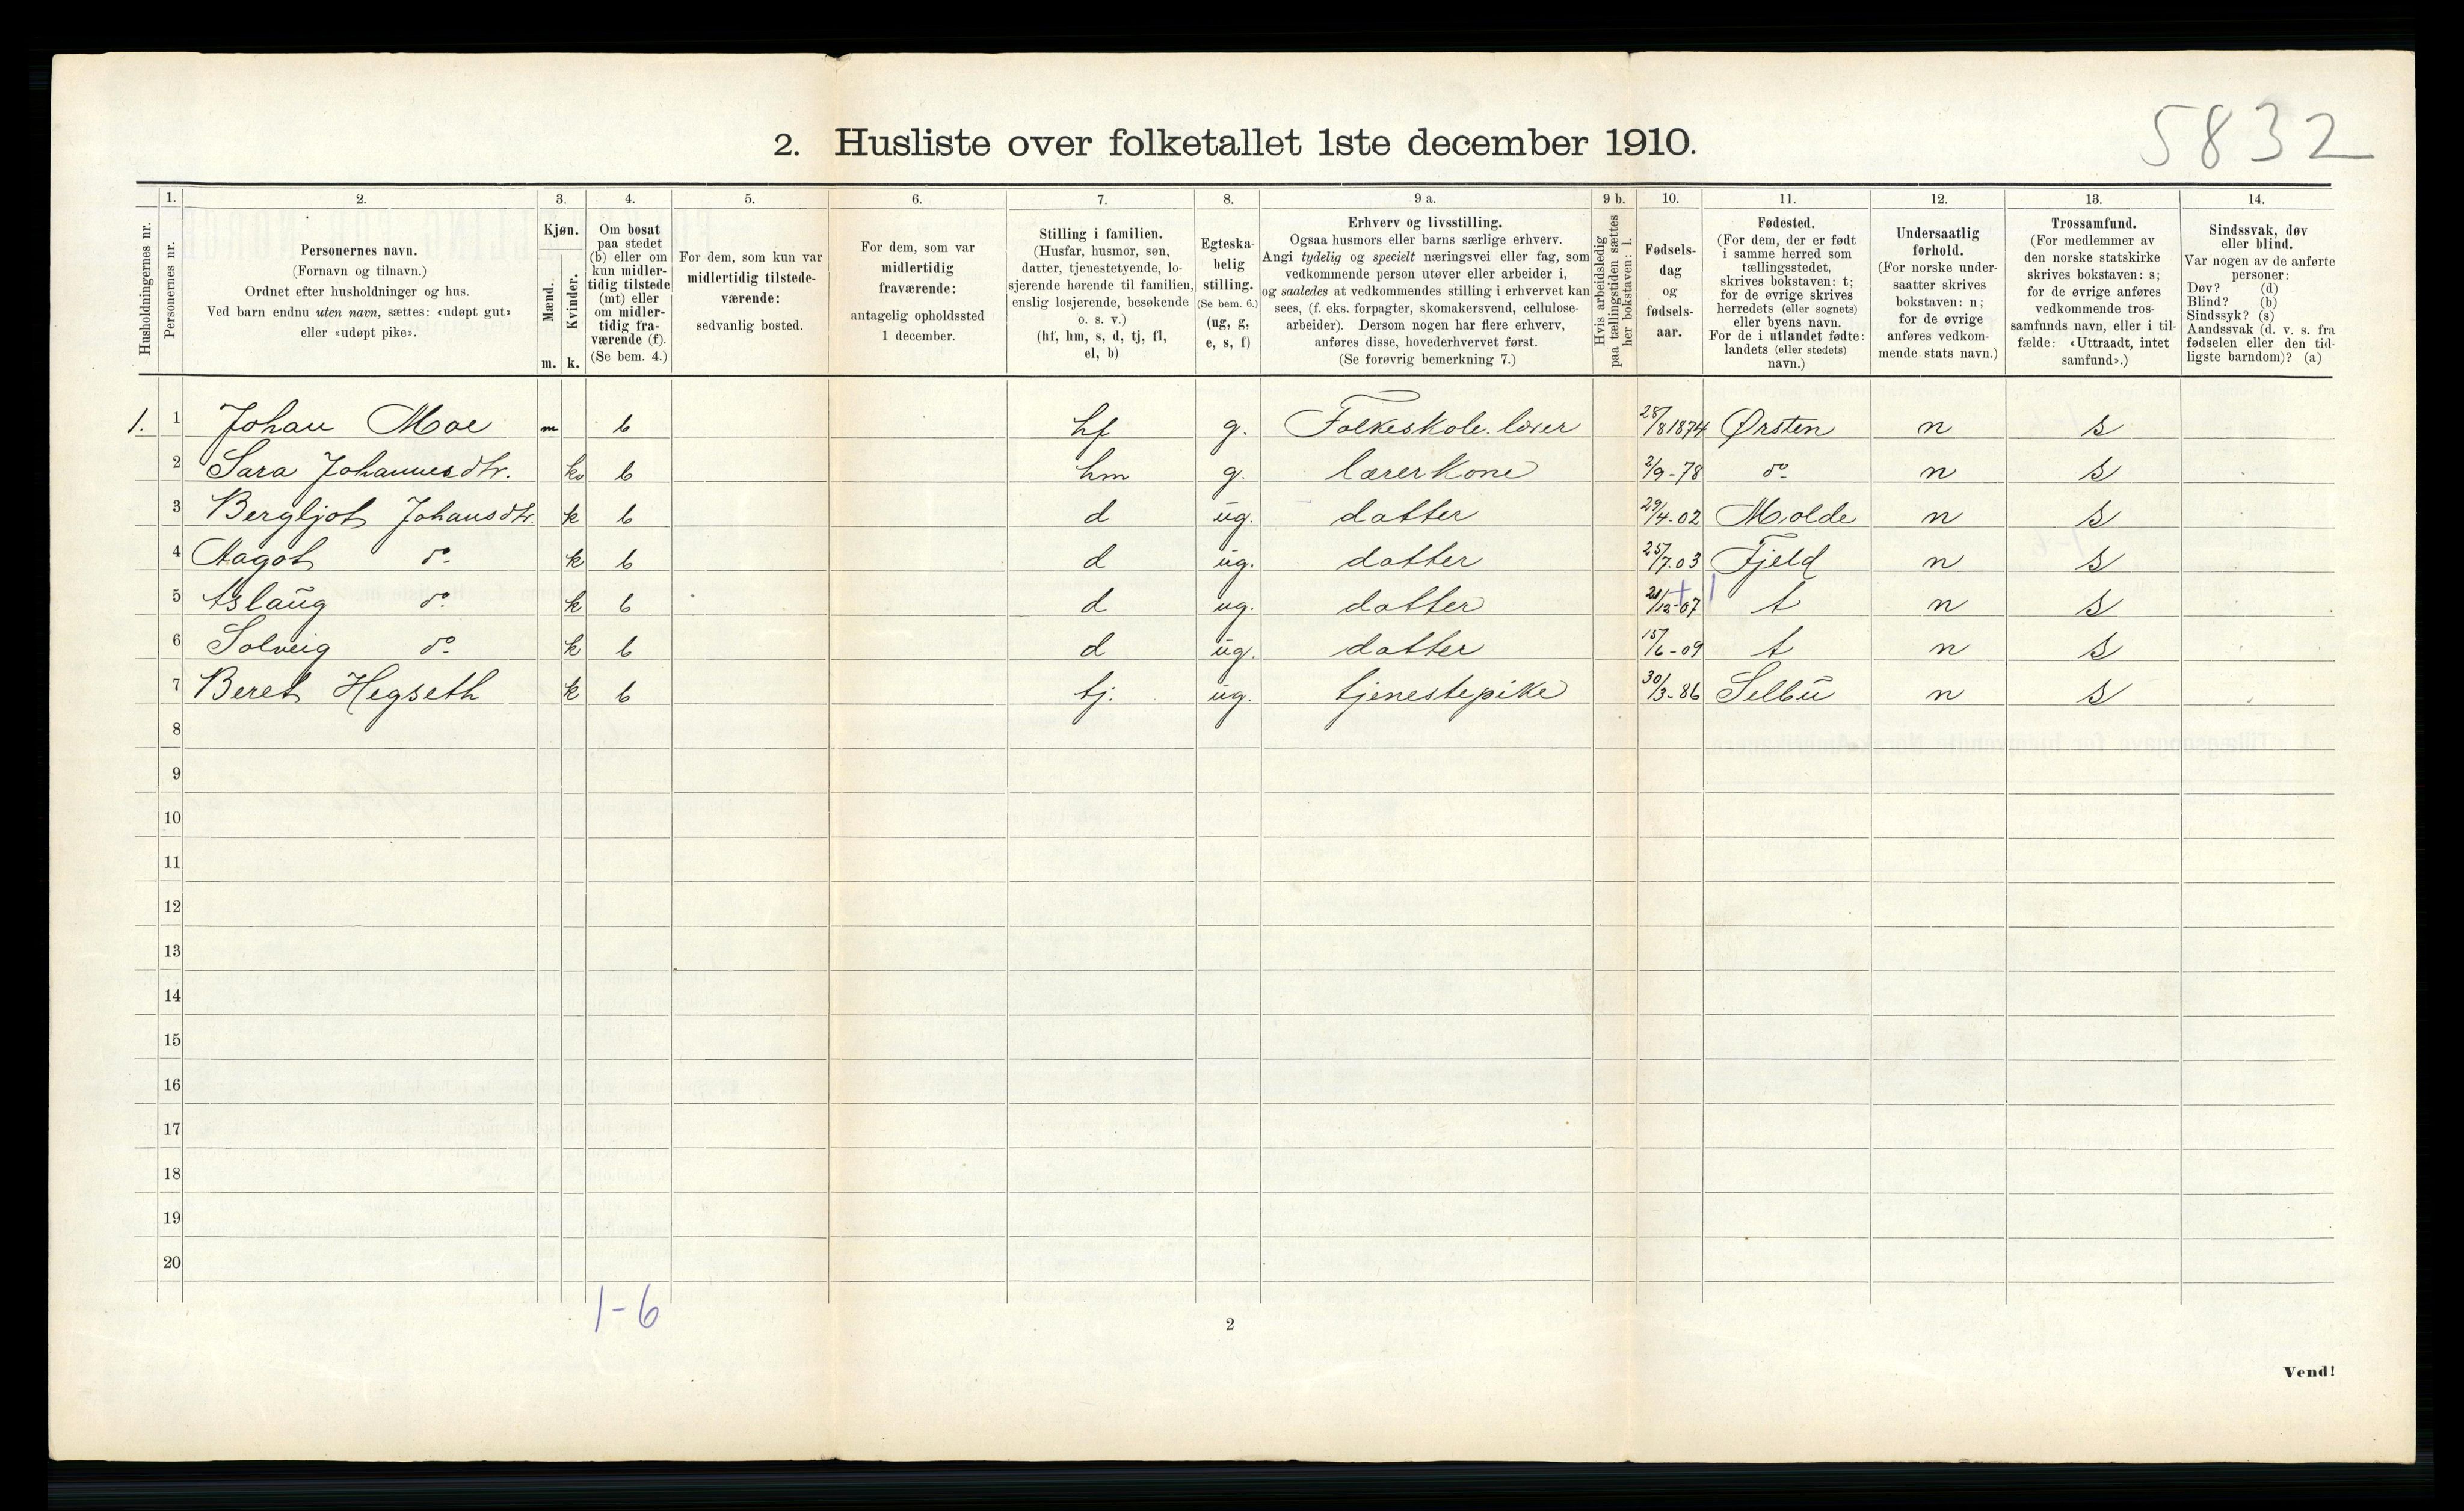 5832
2. Husliste over folketallet 1ste december 1910.
Husholdningernes nr.
1.
Personernes nr.
2.
Personernes navn.
(Fornavn og tilnavn.)
Ordnet efter husholdninger og hus.
Ved barn endnu uten navn, sættes: «udøpt gut»
eller «udøpt pike».
3.
Kjøn.
Mænd.
Kvinder.
m. k.
4.
Om bosat
paa stedet
(b) eller om
kun midler-
tidig tilstede
(mt) eller
om midler-
tidig fra-
værende (f).
(Se bem. 4.)
5.
For dem, som kun var
midlertidig tilstede-
værende:
sedvanlig bosted.
6.
For dem, som var
midlertidig
fraværende:
antagelig opholdssted
1 december.
7.
Stilling i familien.
(Husfar, husmor, søn,
datter, tjenestetyende, lo-
sjerende hørende til familien,
enslig losjerende, besøkende
o. s. v.)
(hf, hm, s, d, tj, fl,
el, b)
8.
Egteska-
belig
stilling.
(Se bem. 6.)
(ug, g,
e, s, f)
9 a.
Erhverv og livsstilling.
Ogsaa husmors eller barns særlige erhverv.
Angi tydelig og specielt næringsvei eller fag, som
vedkommende person utøver eller arbeider i,
og saaledes at vedkommendes stilling i erhvervet kan
sees, (f. eks. forpagter, skomakersvend, cellulose-
arbeider). Dersom nogen har flere erhverv,
anføres disse, hovederhvervet først.
(Se forøvrig bemerkning 7.)
9 b.
Hvis arbeidsledig
paa tællingstiden sættes
her bokstaven: l.
10.
Fødsels-
dag
og
fødsels-
aar.
11.
Fødested.
(For dem, der er født
i samme herred som
tællingsstedet,
skrives bokstaven: t;
for de øvrige skrives
herredets (eller sognets)
eller byens navn.
For de i utlandet fødte:
landets (eller stedets)
navn.)
12.
Undersaatlig
forhold.
(For norske under-
saatter skrives
bokstaven: n;
for de øvrige
anføres vedkom-
mende stats navn.)
13.
Trossamfund.
(For medlemmer av
den norske statskirke
skrives bokstaven: s;
for de øvrige anføres
vedkommende tros-
samfunds navn, eller i til-
fælde: «Uttraadt, intet
samfund».)
14.
Sindssvak, døv
eller blind.
Var nogen av de anførte
personer:
Døv? (d)
Blind? (b)
Sindssyk? (s)
Aandssvak (d. v. s. fra
fødselen eller den tid-
ligste barndom)? (a)
1. 1 Johan Moe m b hf g. Folkeskole.lærer 28/8 1874 Ørsten n s
2 Sara Johannesdtr. k b hm g. lærerkone 2/9-78 do n s
3 Bergljot Johansdtr. k b d ug. datter 29/4-02 Molde n s
4 Aagot do k b d ug. datter 25/7.03 Fjeld n s
5 Aslaug do k b d ug. datter 21/12-07 t n s
6 Solveig do k b d ug. datter 15/6-09 t n s
7 Beret Hegseth k b tj. ug. tjenestepike 30/3-86 Selbu n s
8
9
10
11
12
13
14
15
16
17
18
19
20
1-6
2
Vend!